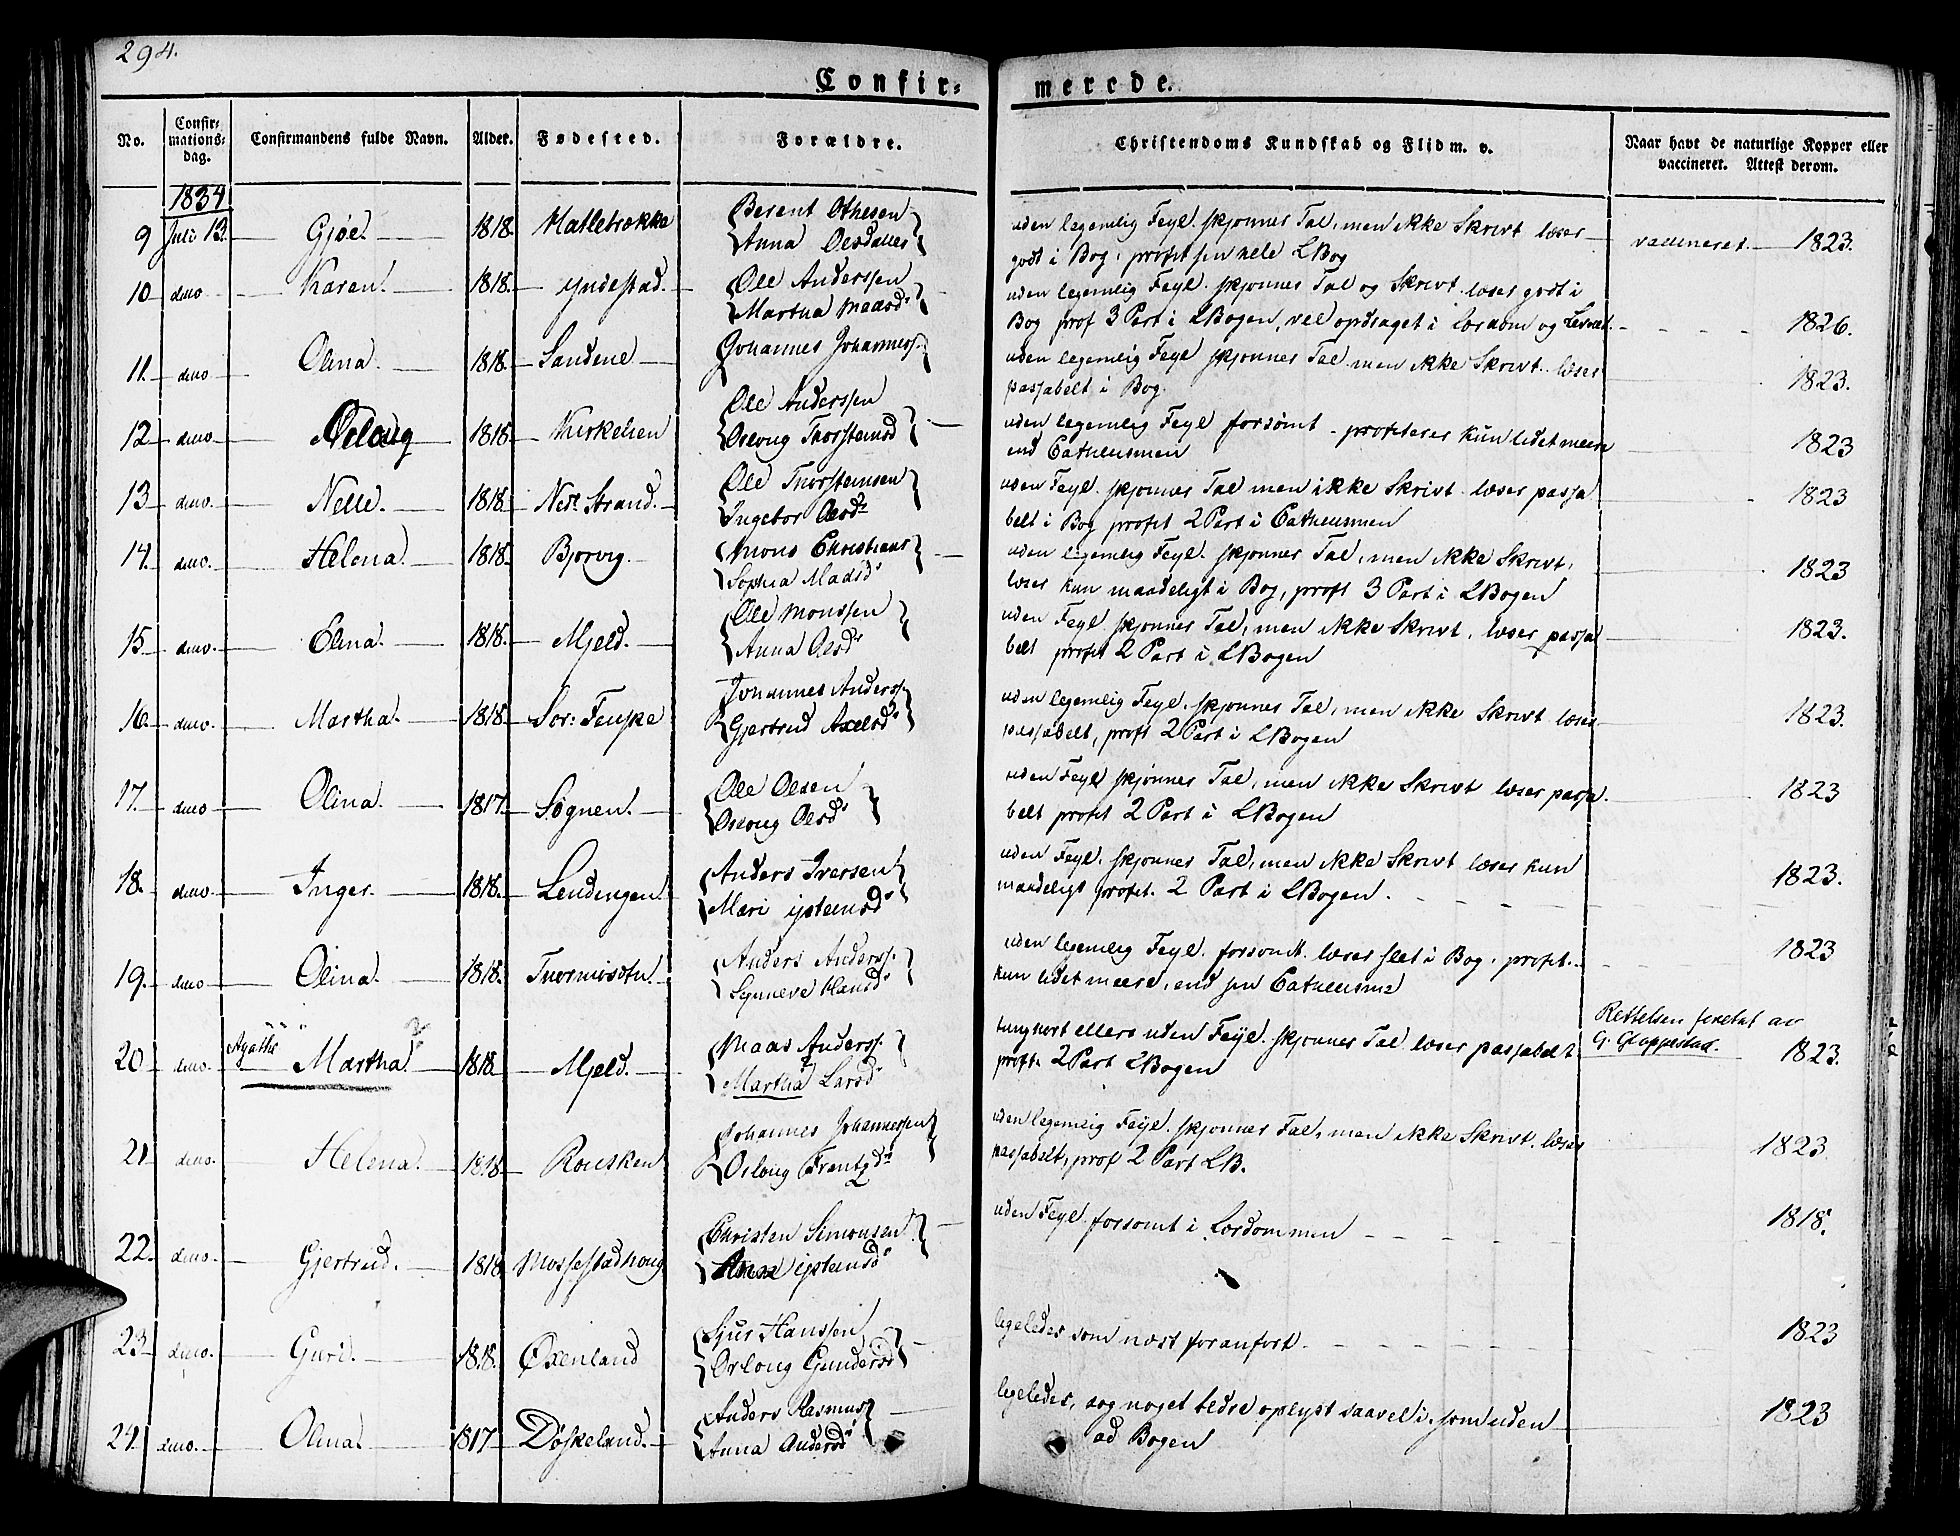 294.
Confir=
merede.
No.
Confir=
mations=
dag.
Confirmandens fulde Navn.
Alder.
Fødested.
Forældre.
Christendoms Kundskab og Flid m. v.
Naar havt de naturlige Kopper eller
vaccineret. Attest derom.
1834
9 Juli 13. Gjøe. 1818. Matlebrække Berent Othesen
Anna Olesdatter
uden legemlig Feyl. skjønner Tal, men ikke Skrivt læser
godt i Bog, profit sin hele LBog
vaccineret. 1823.
10 dito Karen. 1818. Yndestad. Ole Anderssen
Martha Maasd
uden legemlig Feyl. skjønner Tal og Skrivt læser godt i
Bog prof 3 Part i LBogen, vel opdraget i Lærdom og
1826.
11. dito Olina. 1818. Sandene Johannes Johanness.
uden legemlig Feyl skjønner Tal men ikke Skrivt. læser
passabelt i Bog.
1823.
12 dito 1818 Ole Anderssen
Osloug Thorstensd
uden legemlig Feyl forsømt profiterer kun lidet meere
end Cathecismen
1823
13 dito. Nelle. 1818. Ned. Strand. Ole Thorstensen
Ingebor Olesd
uden Feyl. skjønner Tal men ikke Skrivt læser passa
belt i Bog profit 2 Part i Cathecismen
1823
14. dito. Helena. 1818. Bjorvig. Mons Christians
Sophia Madsd
uden legemlig Feyl. skjønner Tal, men ikke Skrivt,
læser kun maadeligt i Bog, profit 3 Part i LBogen
1823
15 dito. Elina. 1818. Mjeld. Ole Monssen
Anna Olesd
uden Feyl skjønner Tal, men ikke Skrivt, læser passa
belt profit 2 Part i LBogen
1823.
16. dito. Martha. 1818. Sør: Feuske Johannes Anderss.
Gjertrud Axelsd
uden legemlig Feyl. skjønner Tal, men ikke Skrivt læser
passabelt, profit 2 Part i LBogen
1823.
17. dito Olina. 1817. Søgnen. Ole Olsen
Osloug Olesd
uden Feyl skjønner Tal, men ikke Skrivt læser passa
belt profit 2 Part i LBogen
1823
18. dito Inger. 1818. Lendingen. Anders Iversen
Mari istensd
uden Feyl. skjønner Tal, men ikke Skrivt læser kun
maadeligt profit. 2 Part i LBogen.
1823.
19. dito Olina. 1818. Anders Anderss.
Synneve Hansd
uden legemlig Feyl. forsømt. læser slet i Bog, profit.
kun lidet meere, end sin Cathecisme
1823
20 dito. Agathe Martha. 1818. Mjeld. Maas Anderss.
Martha Larsd
tunghørt ellers uden Feyl. skjønner Tal læser passabelt
profit. 2 Part LBogen
Rettelsen foretat av
G. Gloppestad. 1823.
21 dito. Helena. 1818. Rousken Johannes Johannessen
Osloug Frantzd
uden legemlig Feyl. skjønner Tal, men ikke Skrivt. læser
passabelt, prof 2 Part LB.
1823.
22. dito. Gjertrud. 1818. Mossestadhoug Christen Simonsen
Anne istensd
uden Feyl forsømt i Lærdommen
1818.
23. dito. Guri. 1818. Øxenland Sjur Hanssen
Orloug Gundersd
ligeledes som næst foranført.
1823
24. dito. Olina. 1817 Døskeland. Anders Rasmus
Anna Andersd
ligeledes, dog noget bedre oplyst saavel i. som uden
ad Bogen
1823